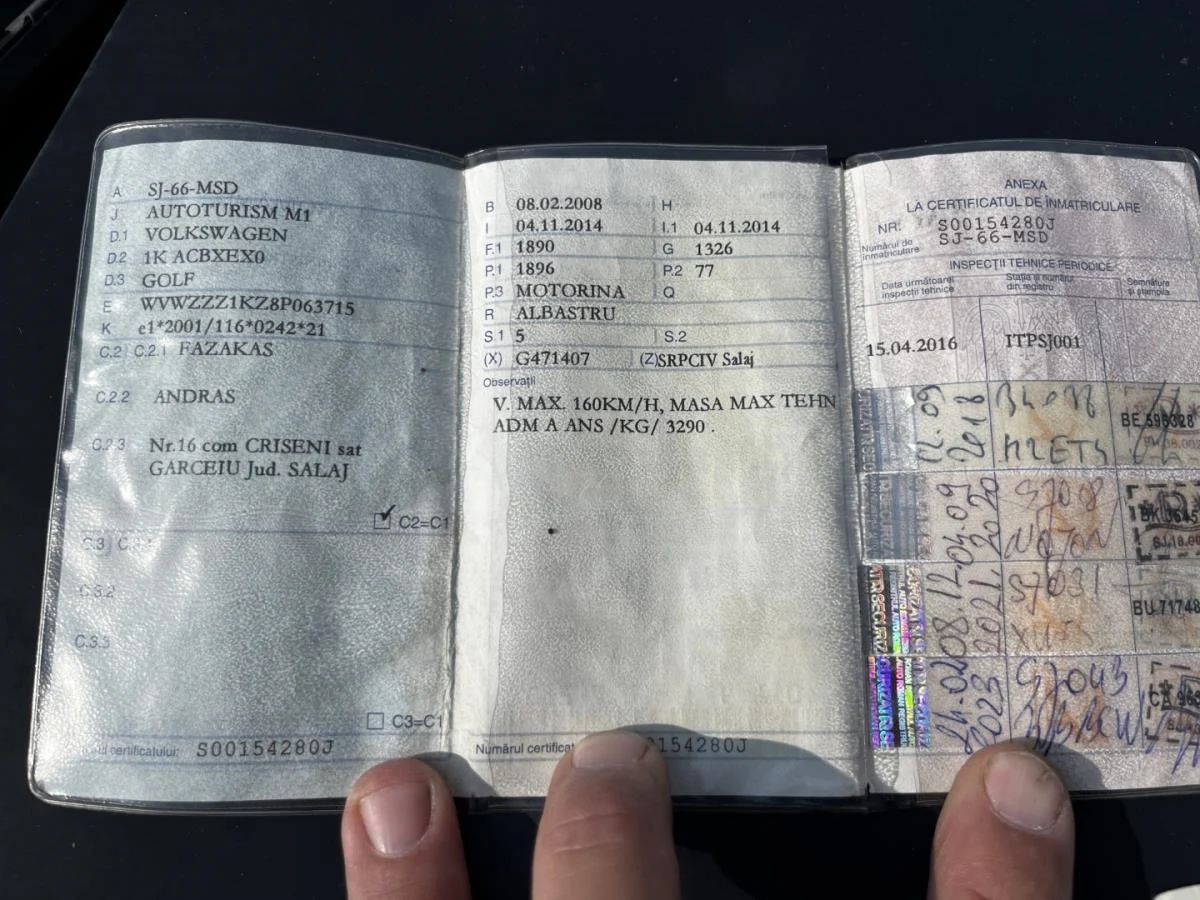 A SJ-66-MSD
J. AUTOTURISM M1
D.1 VOLKSWAGEN
D.2 1K ACBXEX0
D.3 GOLF
E WVWZZZ1KZ8P063715
K e1*2001/116*0242*21
C.2 C.2.1 FAZAKAS
C.2.2 ANDRAS
C.2.3 Nr.16 com CRISENI sat
GARCEIU Jud. SALAJ
C2=C1
C.3
C.3.2
C.3.3
C3=C1
certificatului: S00154280J
B 08.02.2008 H
I 04.11.2014 I.1 04.11.2014
F.1 1890 G 1326
P.1 1896 P.2 77
P.3 MOTORINA Q
R ALBASTRU
S.1 5 S.2
(X) G471407 (Z) SRPCIV Salaj
Observații
V. MAX. 160KM/H, MASA MAX TEHN
ADM A ANS /KG/ 3290 .
Numărul certificat 154280J
ANEXA
LA CERTIFICATUL DE ÎNMATRICULARE
NR: S00154280J
Numărul de înmatriculare SJ-66-MSD
INSPECȚII TEHNICE PERIODICE
Data următoarei inspecții tehnice
Stația și numărul din registru
Semnătura și ștampila
15.04.2016 ITPSJ001
12.09 2018
BE 596328
04.09 2020
SJ008
08.12 2021
SJ031
BU 71748
24.02 2023
SJ043